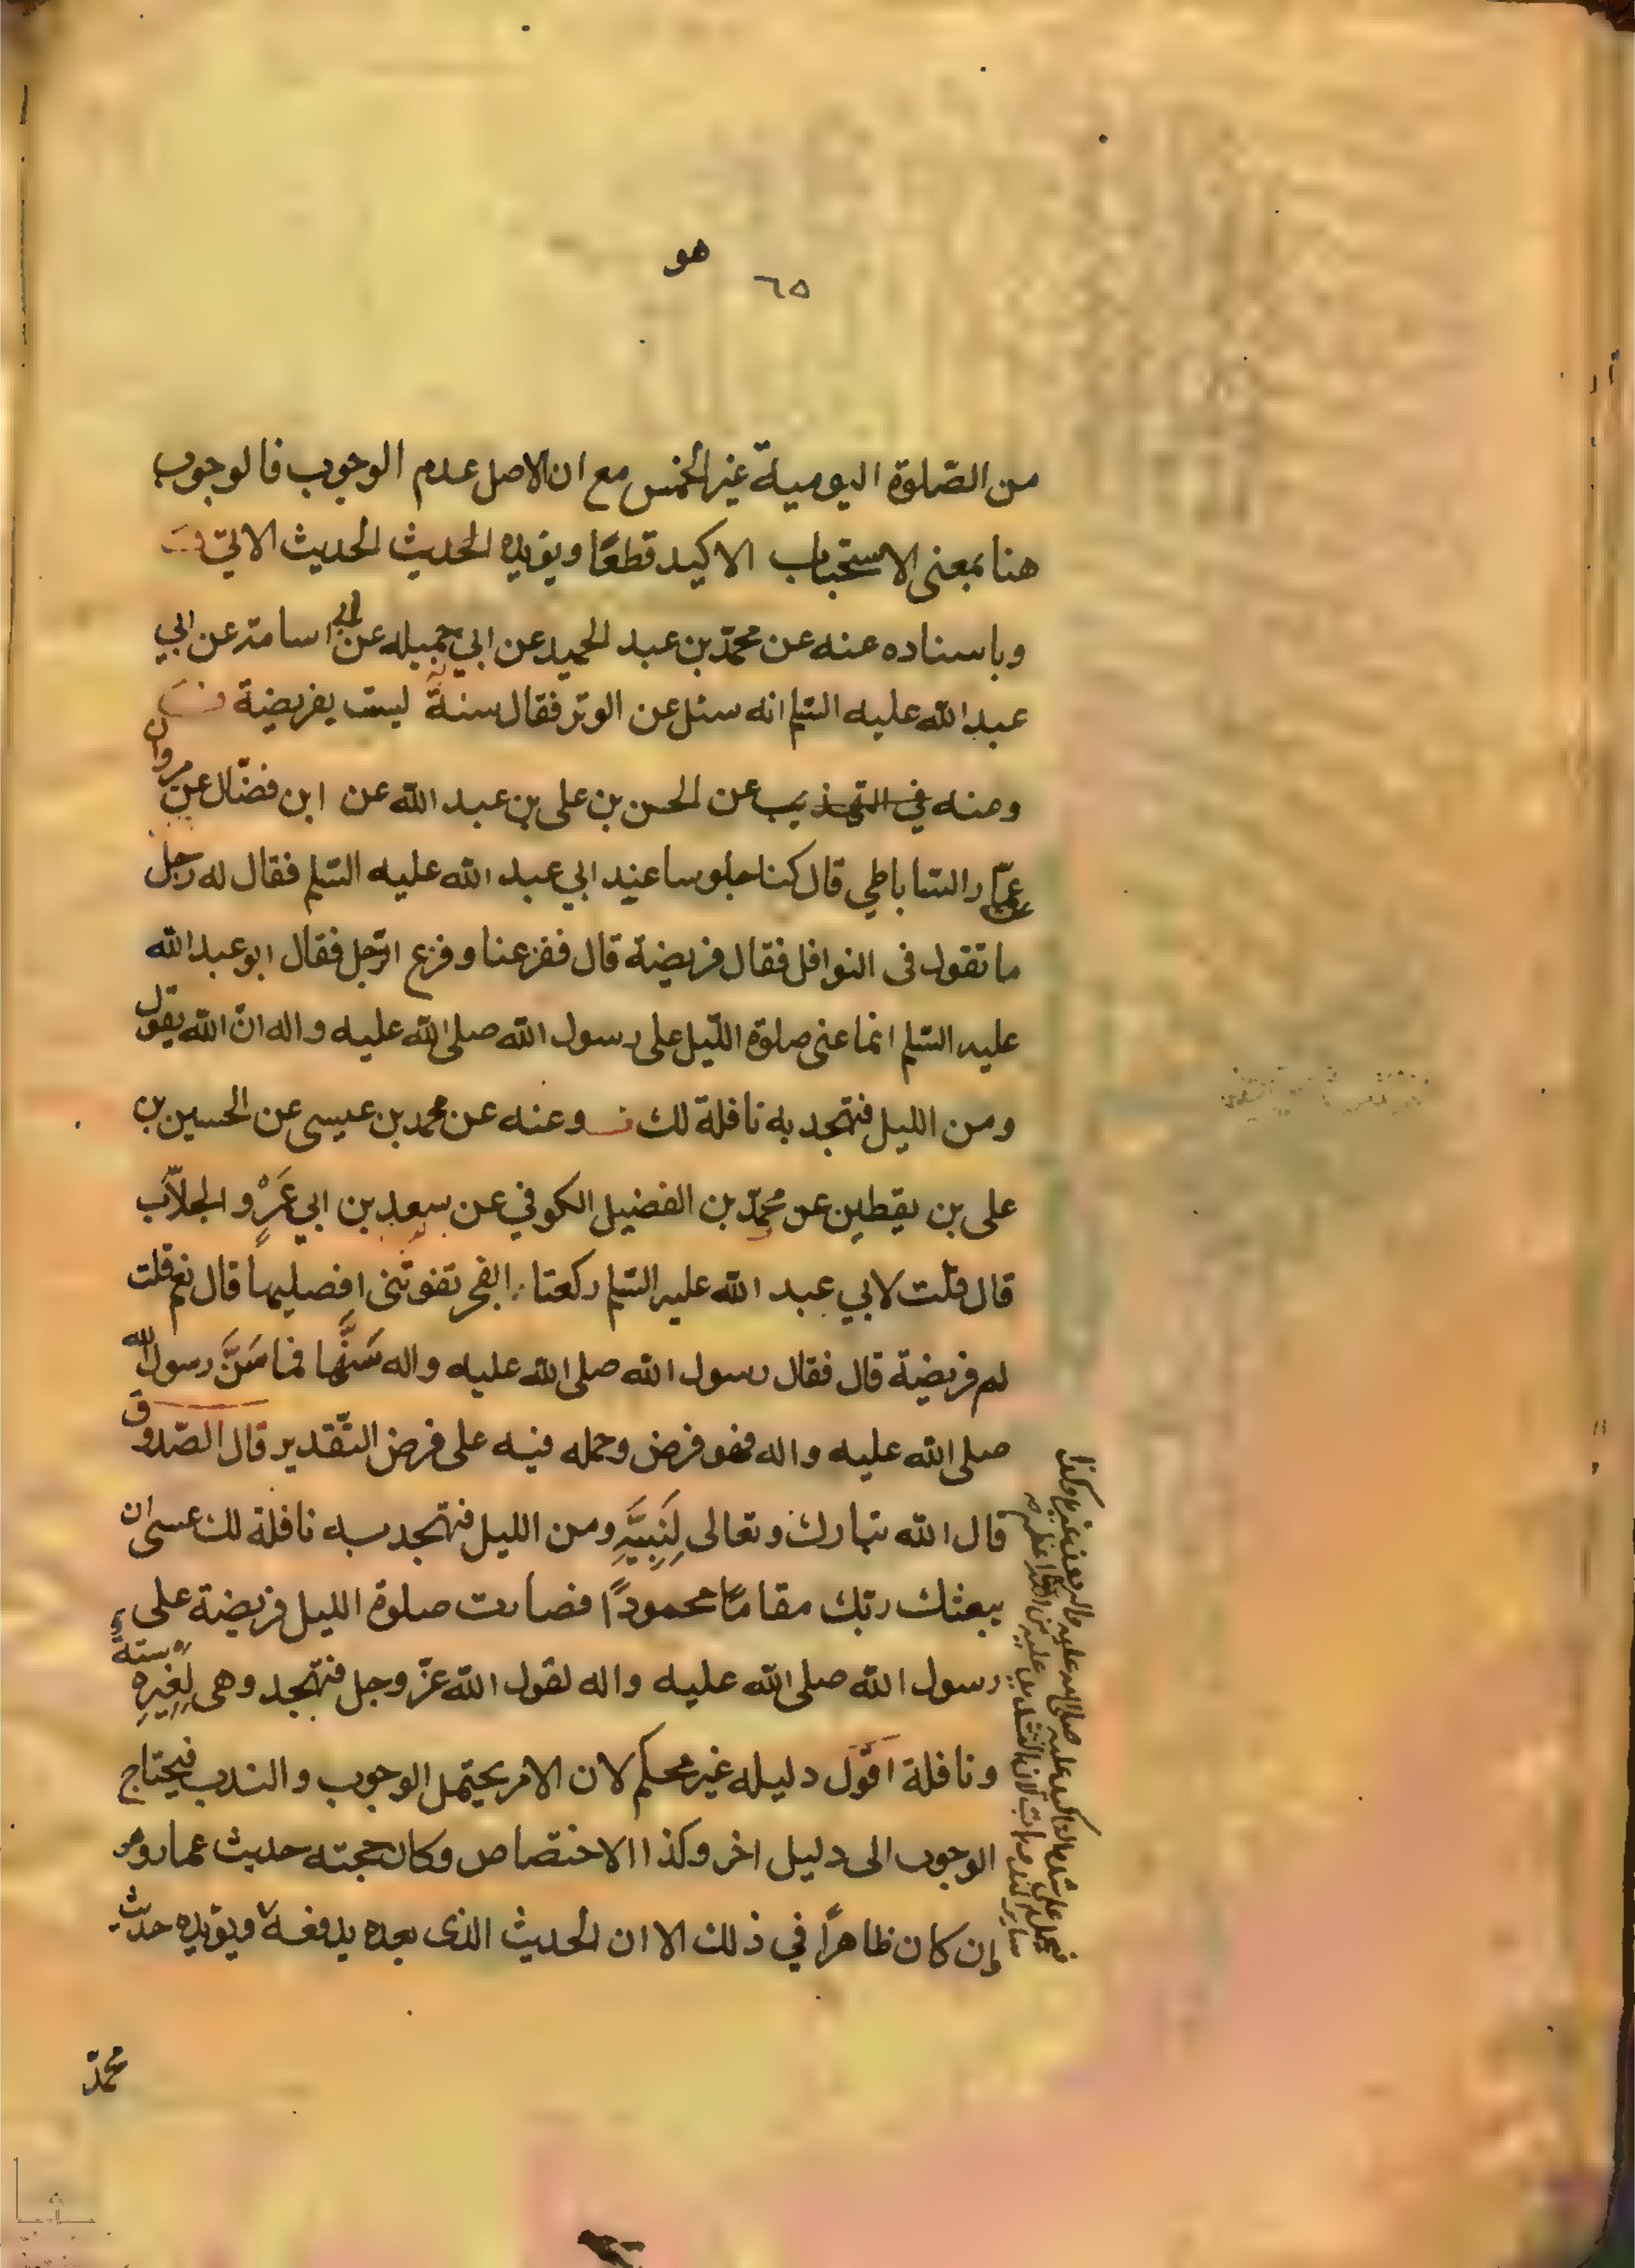 هو
٦٥
من الصّلوة اليومية غير الخمس مع ان الاصل عدم الوجوب فالوجوب
هنا بمعنى الاستحباب الاكيد قطعًا ويؤيده الحديث الحديث الاتي
وباسناده عنه عن محمّد بن عبد الحميد عن ابي جميله عن ابي اسامة عن ابي
عبد الله عليه السّلم انه سئل عن الوتر فقال سنةٌ ليست بفريضة
وعنه في التهذيب عن الحسن بن على بن عبد الله عن ابن فضّال عن مروان
عن عمّار السّاباطي قال كنا جلوسا عند ابي عبد الله عليه السّلم فقال له رجل
ما تقول فى النوافل فقال فريضة قال ففزعنا وفزع الرّجل فقال ابو عبد الله
عليه السّلم انما عنى صلوة اللّيل على رسول الله صلى الله عليه واله انّ الله يقول
ومن الليل فتهجد به نافلة لك وعنه عن محمد بن عيسى عن الحسين بن
على بن يقطين عن محمّد بن الفضيل الكوفي عن سعد بن ابي عَمْرٍو الجلّاب
قال قلت لابي عبد الله عليه السّلم ركعتا الفجر تفوتنى افصليها قال نعم قلت
لم فريضة قال فقال رسول الله صلى الله عليه واله سَنَّها فما سَنَّ رسول الله
صلى الله عليه واله فهو فرض وحمله فيه على فرض التّقدير قال الصّدوق
قال الله تبارك وتعالى لِنَبِيِّهِ ومن الليل فتهجد به نافلة لك عسى ان
يبعثك ربّك مقامًا محمودًا فصارت صلوة الليل فريضة على
رسول الله صلى الله عليه واله لقول الله عزّ وجل فتهجد وهى لِغَيرِهِ سنةٌ
ونافلة اقول دليله غير محكم لان الامر يحتمل الوجوب والندب فيحتاج
الوجوب الى دليل اخر وكذا الاختصاص وكان حجته حديث عمار وهو
إن كان ظاهرًا في ذلك الا ان الحديث الذى بعده يدفعه ويؤيده حديث
محمّد